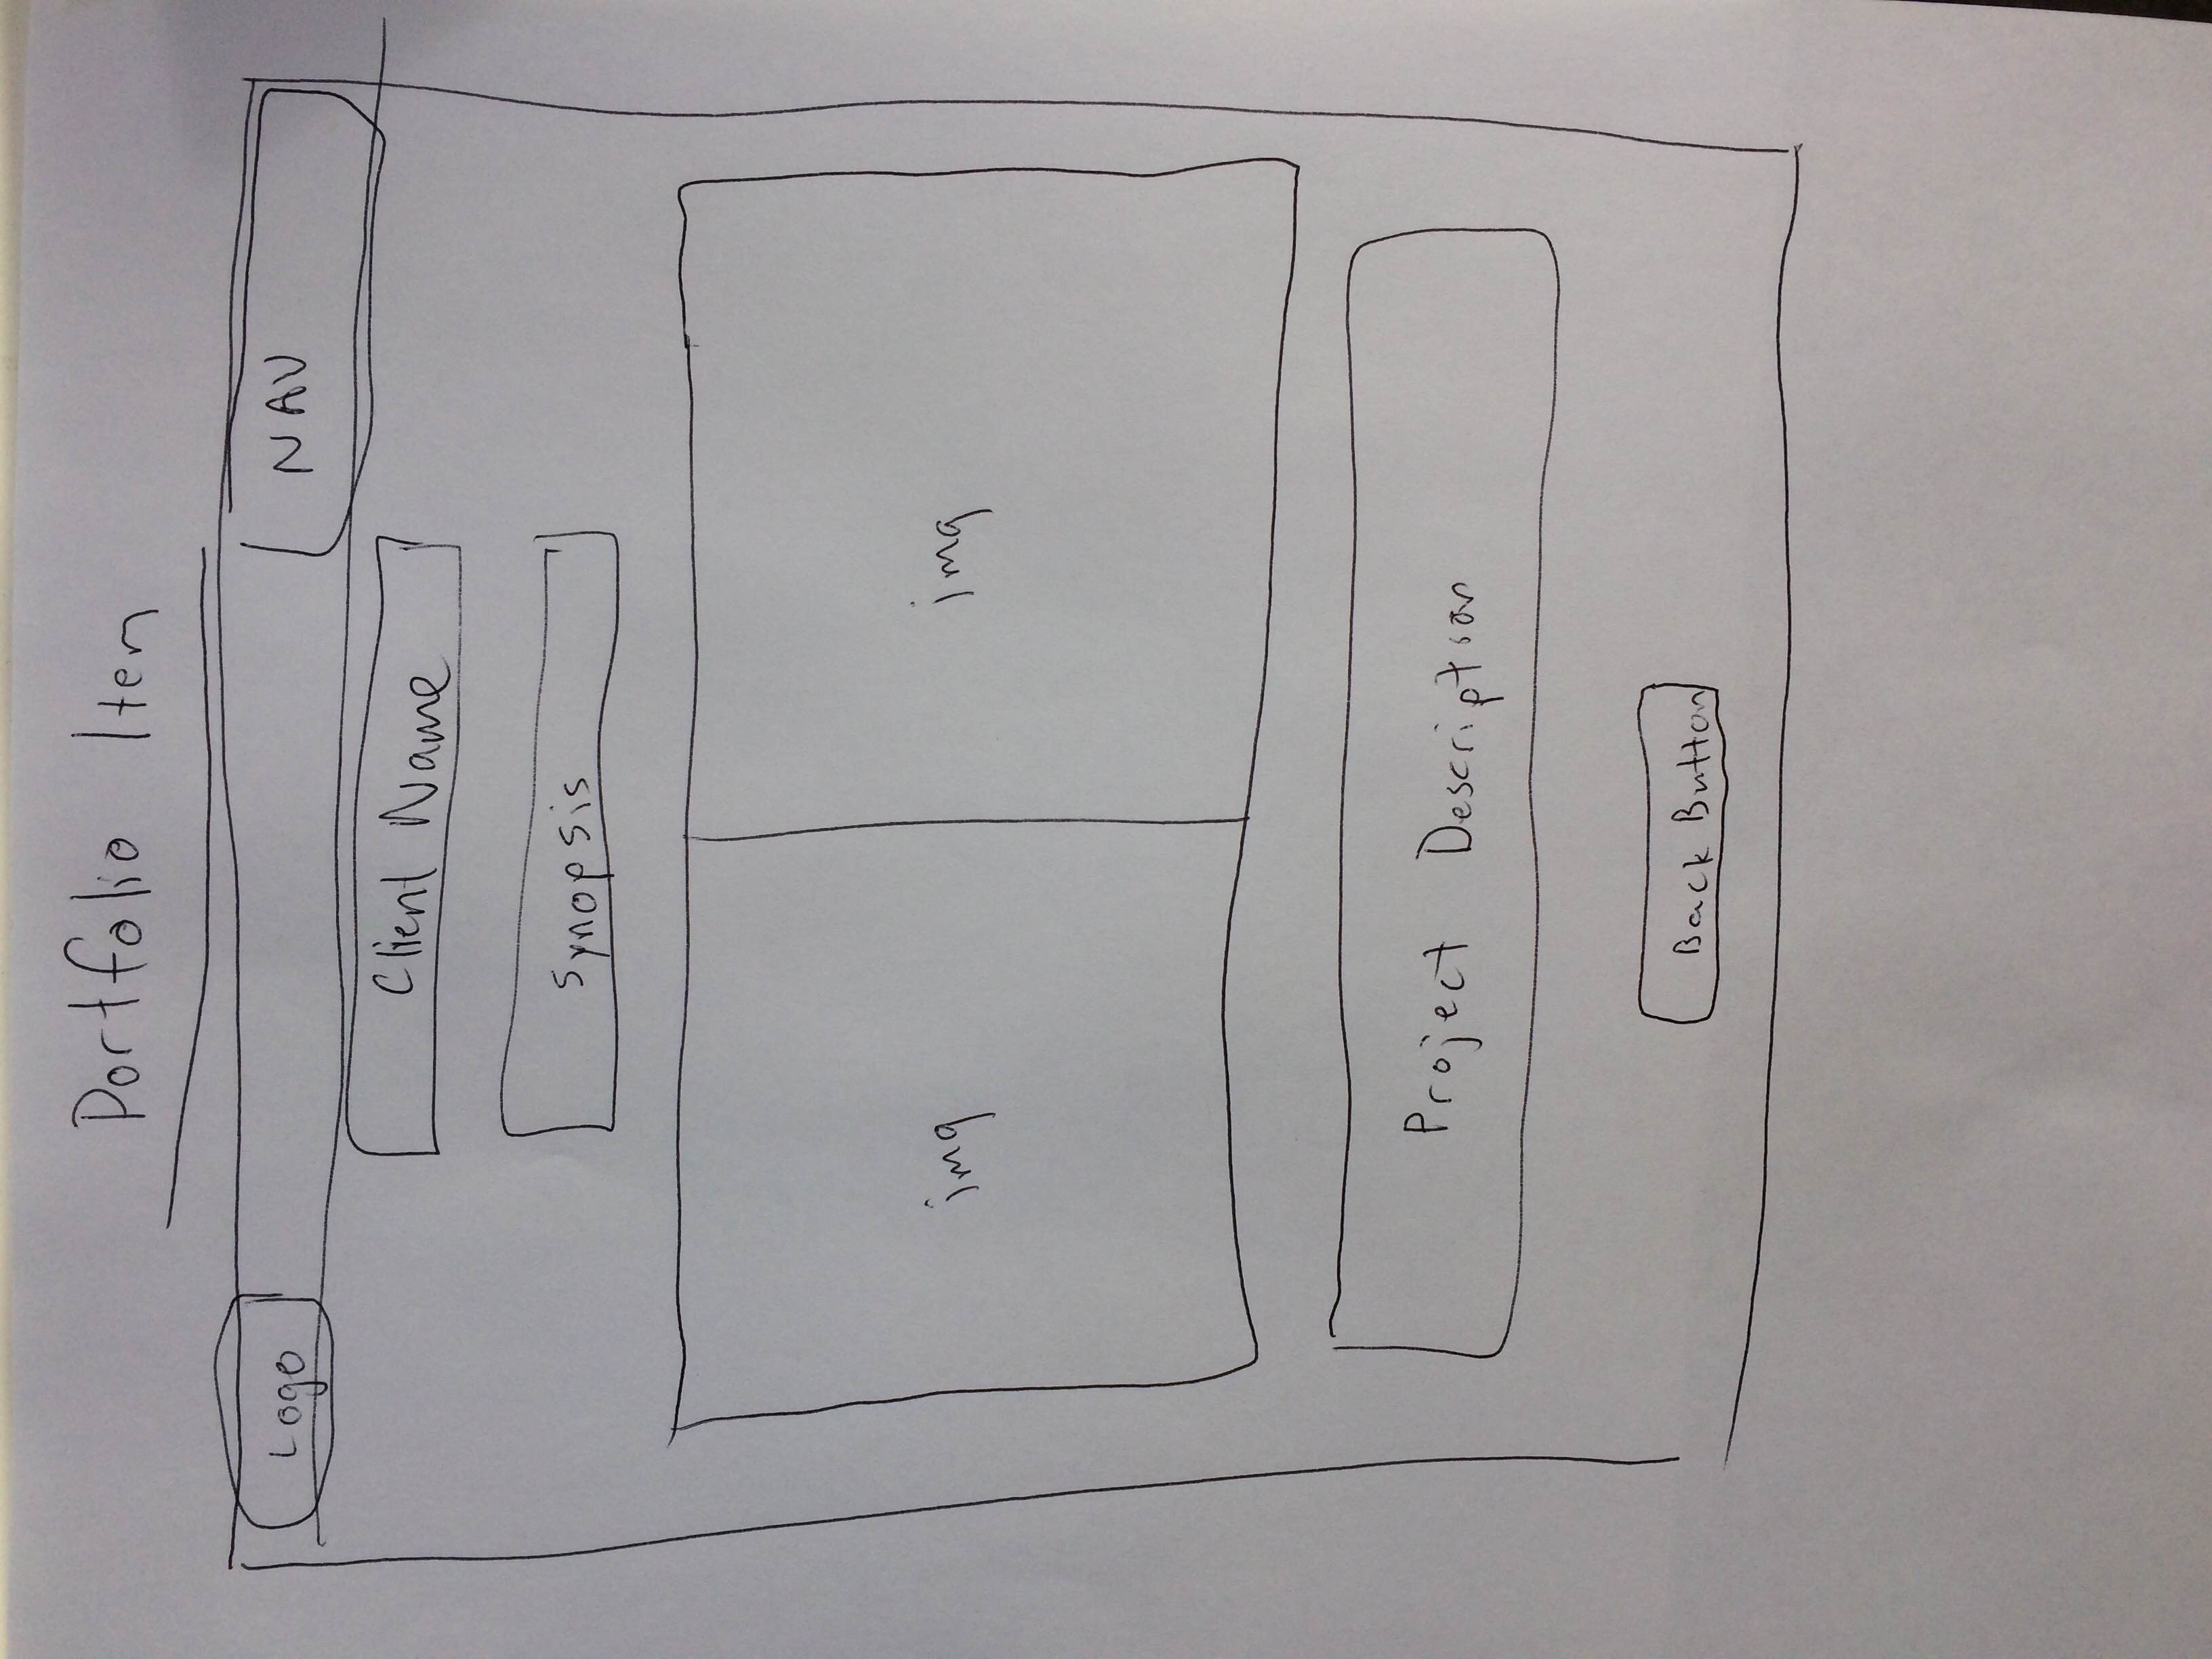 Portfolio Item
Logo
NAV
Client Name
Synopsis
img
img
Project Description
Back Button